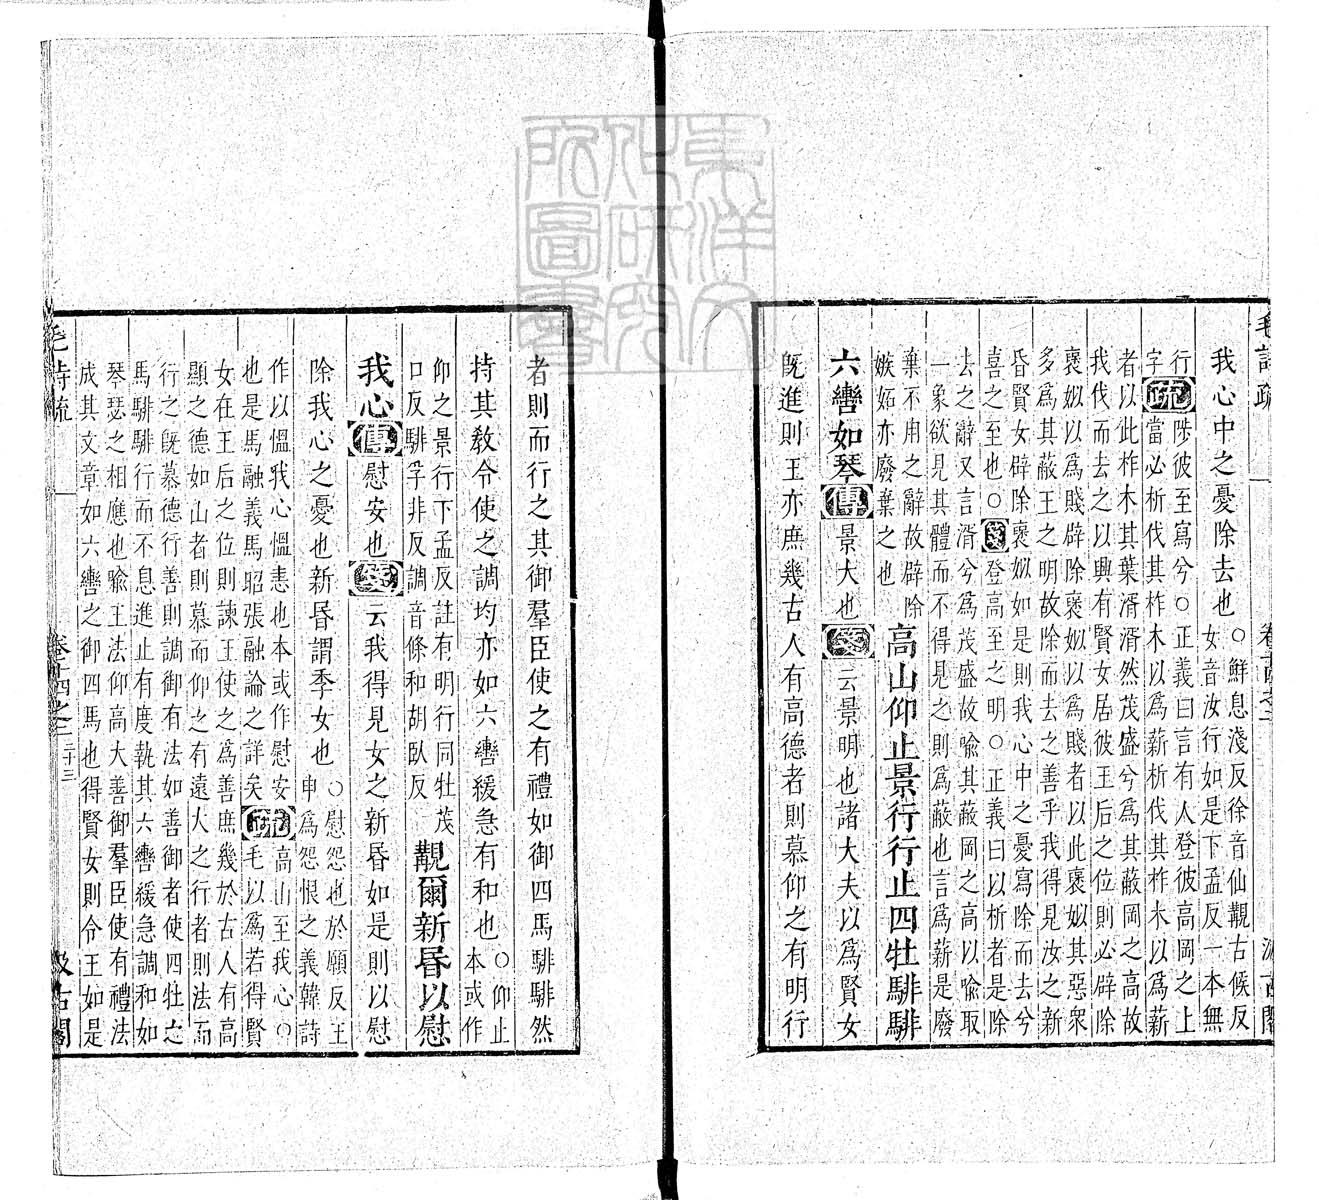 毛詩疏 卷十四之二 汲古閣
我心中之憂除去也○鮮息淺反徐音仙覯古候反
女音汝行如是下孟反一本無
行疏陟彼至寫兮○正義曰言有人登彼高岡之上
字當必析伐其柞木以爲薪析伐其柞木以爲薪
者以此柞木其葉湑湑然茂盛兮爲其蔽岡之高故
我伐而去之以興有賢女居彼王后之位則必辟除
褒姒以爲賤辟除褒姒以爲賤者以此褒姒其惡衆
多爲其蔽王之明故除而去之善乎我得見汝之新
昏賢女辟除褒姒如是則我心中之憂寫除而去兮
喜之至也○箋登高至之明○正義曰以析者是除
去之辭又言湑兮爲茂盛故喻其蔽岡之高以喻取
一象欲見其體而不得見之則爲蔽也言爲薪是廢
棄不用之辭故辟除
嫉妬亦廢棄之也
高山仰止景行行止四牡騑騑
六轡如琴傳景大也箋云景明也諸大夫以爲賢女
旣進則王亦庶幾古人有高德者則慕仰之有明行
者則而行之其御羣臣使之有禮如御四馬騑騑然
持其敎令使之調均亦如六轡緩急有和也○仰止
本或作
仰之景行下孟反註有明行同牡茂
口反騑孚非反調音條和胡臥反
覯爾新昬以慰
我心傳慰安也箋云我得見女之新昬如是則以慰
除我心之憂也新昬謂季女也○慰怨也於願反王
申爲怨恨之義韓詩
作以慍我心慍恚也本或作慰安疏高山至我心○
也是馬融義馬昭張融論之詳矣毛以爲若得賢
女在王后之位則諫王使之爲善庶幾於古人有高
顯之德如山者則慕而仰之有遠大之行者則法而
行之旣慕德行善則調御有法如善御者使四牡之
馬騑騑行而不息進止有度執其六轡緩急調和如
琴瑟之相應也喻王法仰高大善御羣臣使有禮法
成其文章如六轡之御四馬也得賢女則令王如是
毛詩疏 卷十四之二 二十三 汲古閣
東洋文化研究所圖書